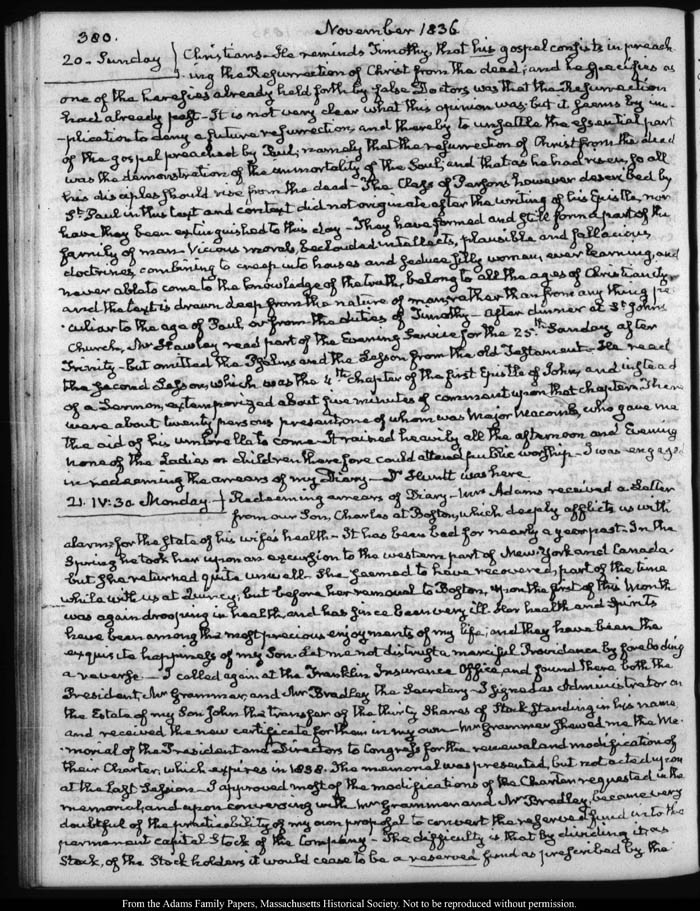 380.
November 1836
20. Sunday } Christians. He reminds Timothy, that his gospel consists in preach
ing the Resurrection of Christ from the dead; and he specifies as
one of the heresies already held forth by false Doctors was that the Resurrection
had already past. It is not very clear what this opinion was; but it seems by im-
-plication to deny a future resurrection, and thereby to unsettle the essential part
of the gospel preached by Paul; namely that the resurrection of Christ from the dead
was the demonstration of the immortality of the Soul, and that as he had risen, so all
his disciples should rise from the dead - The Class of Persons however described by
St. Paul in this text and context did not originate after the writing of his Epistle, nor
have they been extinguished to this day - They have formed and still form a part of the
family of man. Vicious morals, beclouded intellects, plausible and fallacious
doctrines, combining to creep into houses and seduce silly women, ever learning, and
never able to come to the knowledge of the truth, belong to all the ages of Christianity,
and the text is drawn deep from the nature of man, rather than from any thing pe
culiar to the age of Paul, or from the duties of Timothy - after dinner at St. John's
Church, Mr Hawley read part of the Evening Service for the 25th Sunday after
Trinity - but omitted the Psalms and the Lesson from the old Testament. He read
the second Lesson, which was the 4th chapter of the first Epistle of John, and instead
of a Sermon, extemporized about five minutes of comment upon that chapter. There
were about twenty persons present, one of whom was Major Macomb, who gave me
the aid of his umbrella to come. It rained heavily all the afternoon and Evening
none of the Ladies or children therefore could attend public worship - I was engaged
in redeeming the arrears of my Diary - Dr Huntt was here.
21. IV:30. Monday } Redeeming arrears of Diary - Mrs Adams received a Letter
from our Son, Charles at Boston, which deeply afflicts us with
alarm, for the state of his wife's health - It has been bad for nearly a year past. In the
Spring he took her upon an excursion to the western part of New-York and Canada.
but she returned quite unwell. She seemed to have recovered, part of the time
while with us at Quincy, but before her removal to Boston, upon the first of this Month
was again drooping in health, and has since been very ill. Her health and Spirits
have been among the most precious enjoyments of my life; and they have been the
exquisite happiness of my Son. Let me not distrust a merciful Providence by foreboding
a reverse - I called again at the Franklin Insurance Office, and found there both the
President, Mr Grammer, and Mr Bradley the Secretary - I signed as Administrator on
the Estate of my Son John the transfer of the thirty shares of Stock standing in his name
and received the new certificate for them in my own - Mr Grammer shewed me the Me-
morial of the President and Directors to Congress for the renewal and modification of
their Charter, which expires in 1838. The memorial was presented, but not acted upon
at the last Session - I approved most of the modifications of the Charter requested in the
memorial, and upon conversing with Mr Grammer and Mr Bradley, became very
doubtful of the practicability of my own proposal to convert the reserved fund into the
permanent capital Stock of the Company - The difficulty is that by dividing it, as
Stock, of the Stockholders it would cease to be a reserved fund as prescribed by the
From the Adams Family Papers, Massachusetts Historical Society. Not to be reproduced without permission.